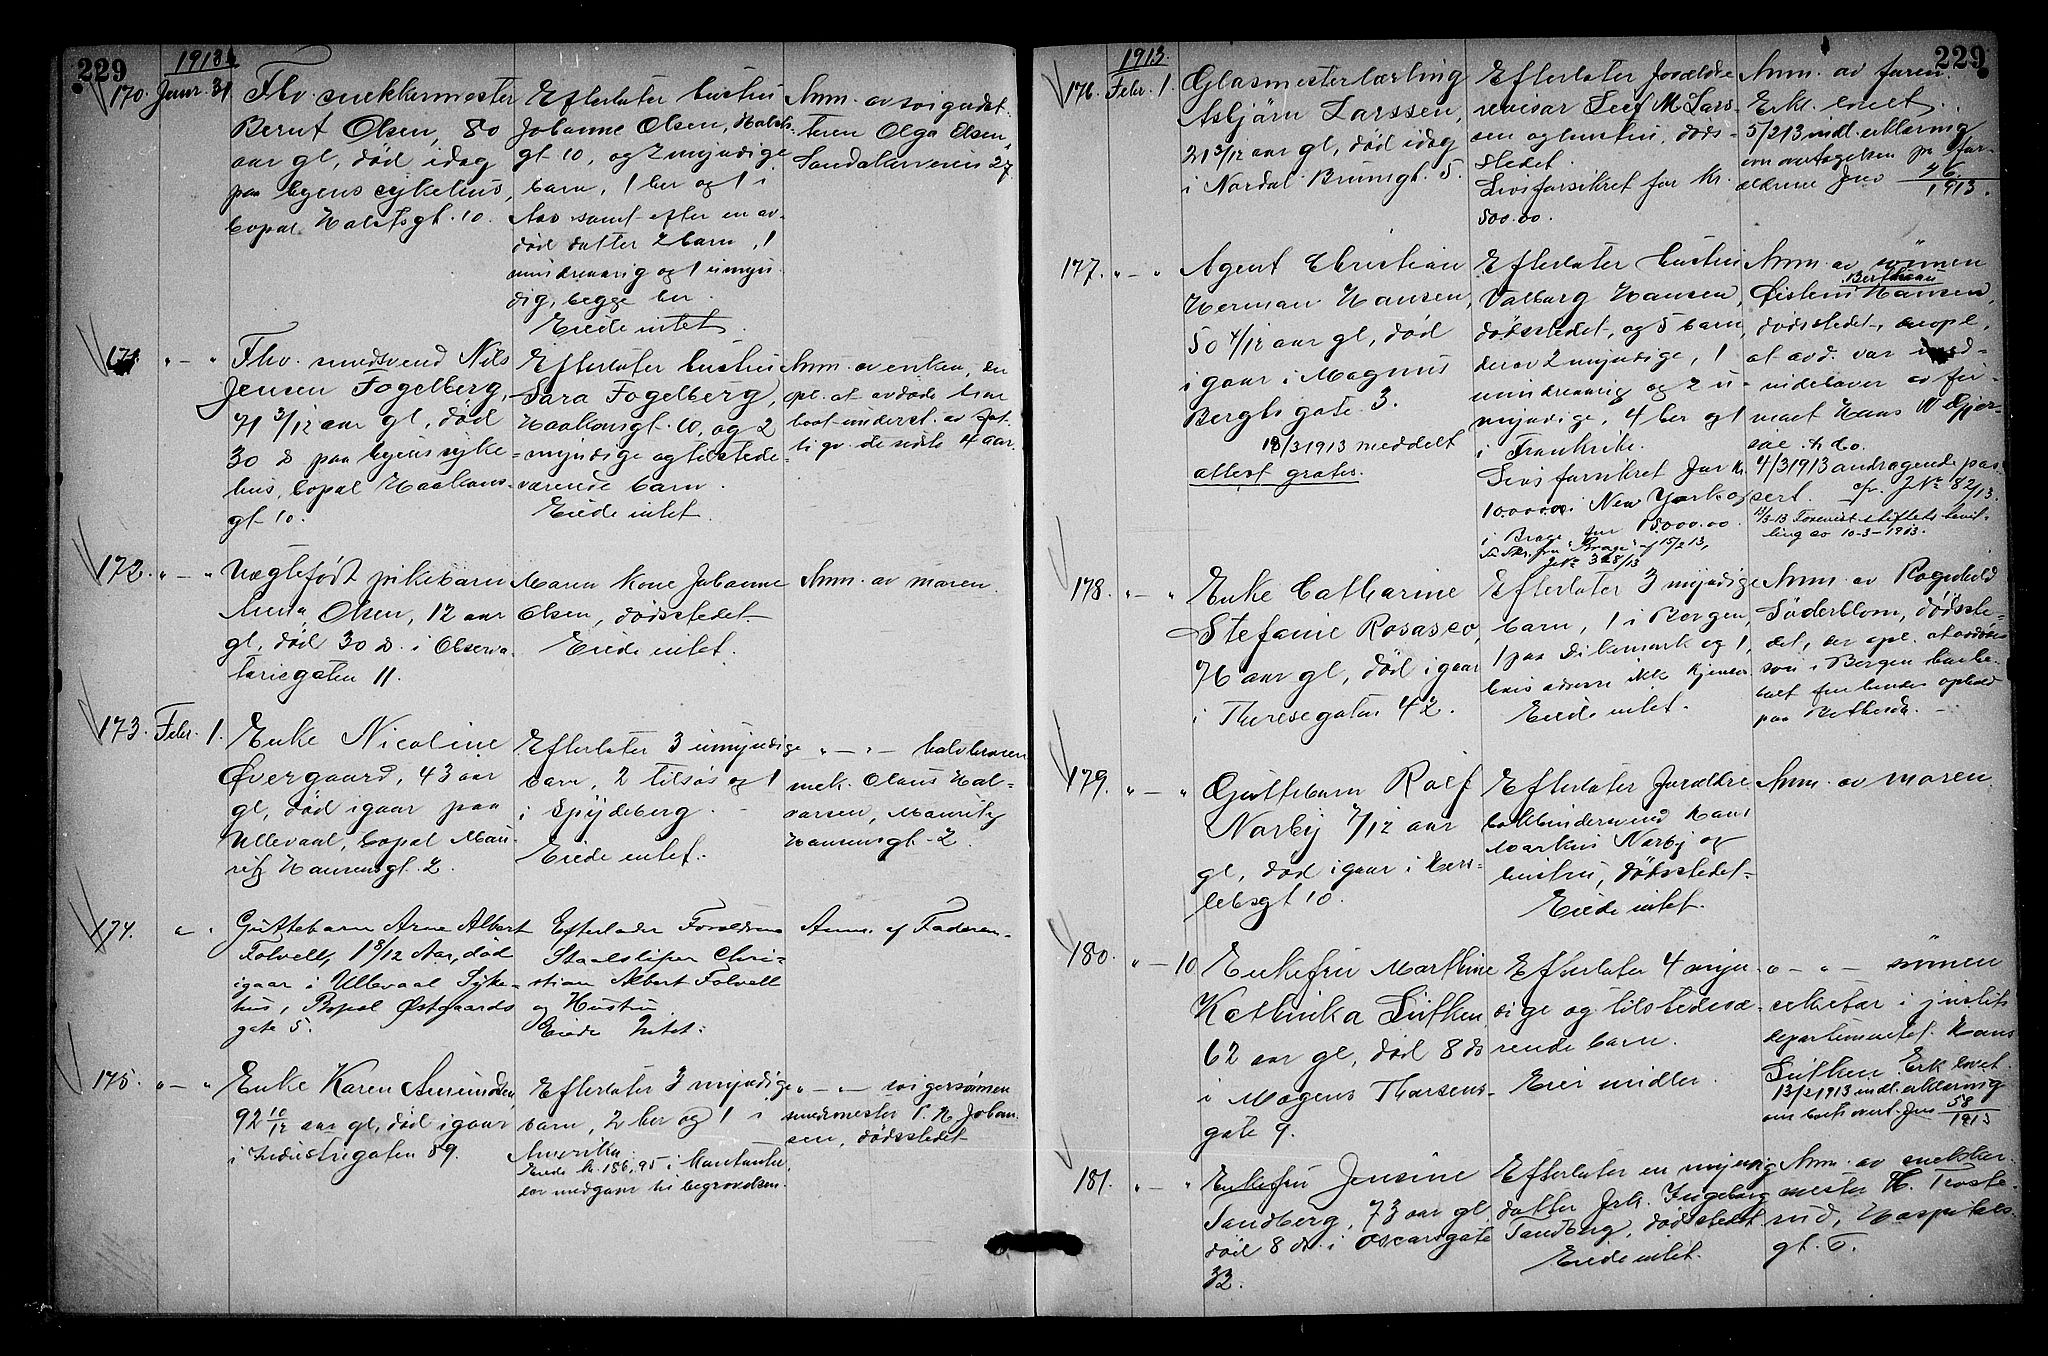 229
1913
170. Janr. 31
Fhv. snekkermester
Bernt Olsen, 80
aar gl, død idag
paa byens sykehus,
bopal
gt. 10.
Efterlater hustru
Johanne Olsen,
gt 10, og 2 myndige
barn, 1 her og 1 i
samt efter en av-
død datter 2 barn, 1
mindreaarig og 1 umyn-
dig, begge her.
Eiede intet.
Anm. av svigerdat-
teren Olga Olsen,
27
171. " - "
Fhv. smedsvend Nils
Jensen Fogelberg,
71 3/12 aar gl, død
30 ds paa byens syke-
hus, bopal Haakons-
gt 10.
Efterlater hustru
Sara Fogelberg,
Haakonsgt. 10, og 2
myndige og tilstede-
værende barn.
Eiede intet.
Anm. av enken, der
opl. at avdøde har
hat underst. av fat-
tigv. de sidste 4 aar.
172. " - "
Uægtefødt pikebarn
Olsen, 12 aar
gl, død 30 ds. i Observa-
toriegaten 11.
Moren kone Johanne
Olsen, dødsstedet.
Eiede intet.
Anm. av moren.
173. Febr. 1.
Enke Nicoline
Øvergaard, 43 aar
gl, død igaar paa
Ullevaal, bopal Mau-
ritz Hansensgt. 2.
Efterlater 3 umyndige
barn, 2 tilsøs og 1
i Spydeberg.
Eiede intet.
" - " - halvbroren
mek. Olaus Hal-
vorsen, Mauritz
Hansensgt. 2.
174.
Guttebarn Arne Albert
Folvell, 1 8/12 Aar, død
igaar i Ullevaal Syke-
hus, Bopal Østgaards
gate 5.
Efterlader Forældrene
Staalsliper Chri-
stian Albert Folvell
og Hustru.
Eiede Intet.
Anm. af Faderen.
175. " - "
Enke Karen Amundsen,
92 10/12 aar gl, død igaar
i Industrigaten 59.
Efterlater 3 myndige
barn, 2 her og 1 i
Amerika.
Eiede kr. 186,95 i kontanter,
der medgaar til begravelsen.
" - " - svigersønnen
smedmester Johan-
sen, dødsstedet
229
1913.
176. Febr. 1.
Glasmesterlærling
Asbjørn Larssen,
21 3/12 aar gl, død idag
i Nordal Brunsgt. 5.
Efterlater forældre
revisor Leef M Lars-
sen og hustru, døds-
stedet.
Livsforsikret for kr.
500.00.
Anm. av faren.
Erkl. lovet.
5/2 13 indl. erklæring
om overtagelsen fra for-
ældrene Jno 46/1913.
177. " - "
Agent Christian
Herman Hansen,
50 4/12 aar gl, død
igaar i Magnus
Bergs gate 3.
18/3 1913 meddelt
attest gratis.
Efterlater hustru
Valborg Hansen,
dødsstedet, og 5 barn,
derav 2 myndige, 1
mindreaarig og 2 u-
myndige, 4 her og 1
i Frankrike.
Livsforsikret for kr.
10.000.00 i New York og
i Brage for 15000.00.
Se skr. fra "Brage" af 15/2 13,
J№ 328/13
Anm. av sønnen
Øistein Hansen,
dødsstedet, der opl.
at avd. var med-
indehaver av fir-
maet Hans
& Co.
4/3 1913 andragende pas-
sert. cfr. J№ 82/13.
13/3-13 Forevist stiftets bevil-
ling av 10-3-1913.
178. " - "
Enke Catharine
Stefanie Rosasco,
76 aar gl, død igaar
i Theresegaten 42.
Efterlater 3 myndige
barn, 1 i Bergen,
1 paa Dikemark og 1,
hvis adresse ikke kjendes
Eiede intet.
Anm. av Ragnhild
Söderblom, dødsste-
det, der opl. at avdødes
søn i Bergen har be-
talt for hendes ophold
paa Bethesda.
179. " - "
Guttebarn Rolf
Narby 7/12 aar
gl, død igaar i Hers-
lebsgt 10.
Efterlater forældre
bokbindersvend Hans
Markus Narby og
hustru, dødsstedet.
Eiede intet.
Anm. av moren.
180. " - 10
Enkefru Marthine
Kathinka Lütken,
62 aar gl, død 8 ds
i Mogens Thorsens-
gate 9.
Efterlater 4 myn-
dige og tilstedevæ-
rende barn.
Eier midler.
" - " - sønnen
sekretær i justits
departementet Hans
Lütken. Erk. lovet.
13/2 1913 indl. erklæring
om boets overt. Jno 58/1913
181. " - "
Enkefru Jensine
Tandberg, 73 aar gl
død 8 ds. i Oscarsgate
32.
Efterlater en myndig
datter frk. Ingeborg
Tandberg, dødsstedet
Eiede intet.
Anm. av snekker-
mester H. Troste-
rud, Hospitals-
gt.